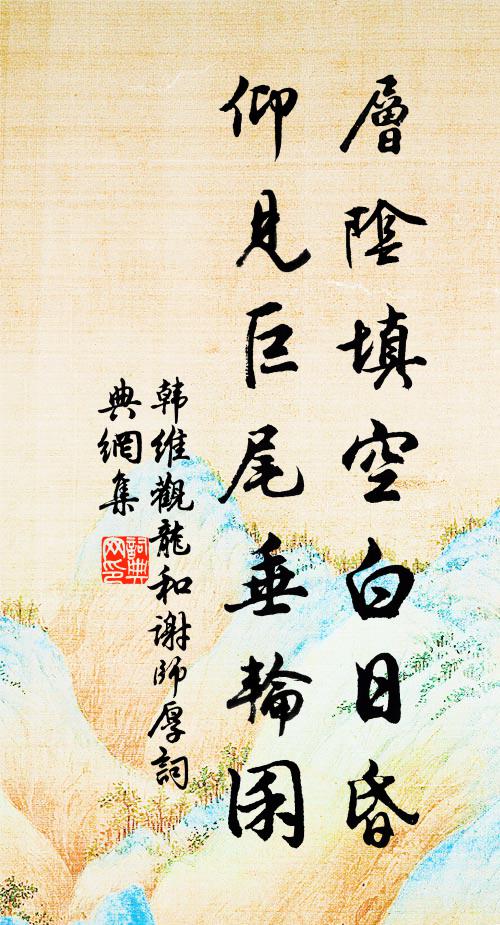 層陰填空白日昏
仰見巨尾垂輪囷
韩維觀龍和谢師厚詞
典網集
詞典
网印